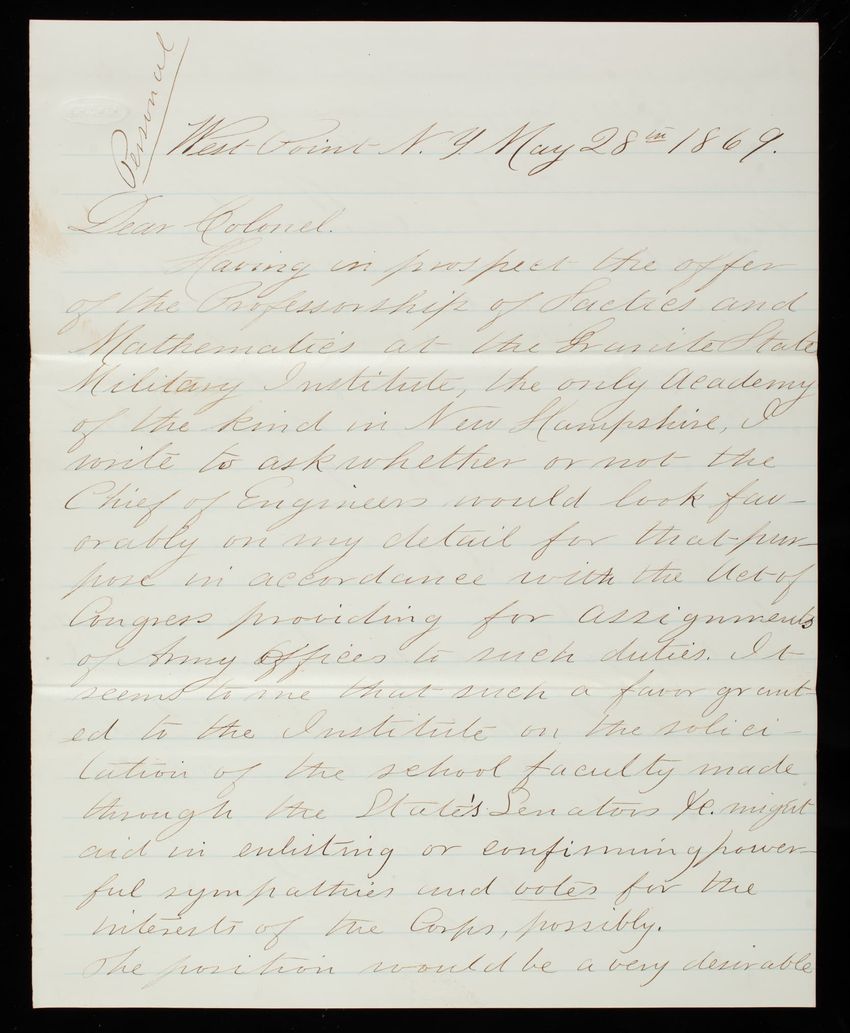 Personal
West Point N. Y. May 28th 1869.
Dear Colonel.
Having in prospect the offer
of the Professorship of Tactics and
Mathematics at the Granite State
Military Institute, the only Academy
of the kind in New Hampshire, I
write to ask whether or not the
Chief of Engineers would look fav-
orably on my detail for that pur-
pose in accordance with the Act of
Congress providing for assignments
of Army Offices to such duties. It
seems to me that such a favor grant-
ed to the Institute on the solici-
tation of the school faculty made
through the State's Senators &c. might
aid in enlisting or confirming power-
ful sympathies and votes for the
interests of the Corps, possibly.
The position would be a very desirable